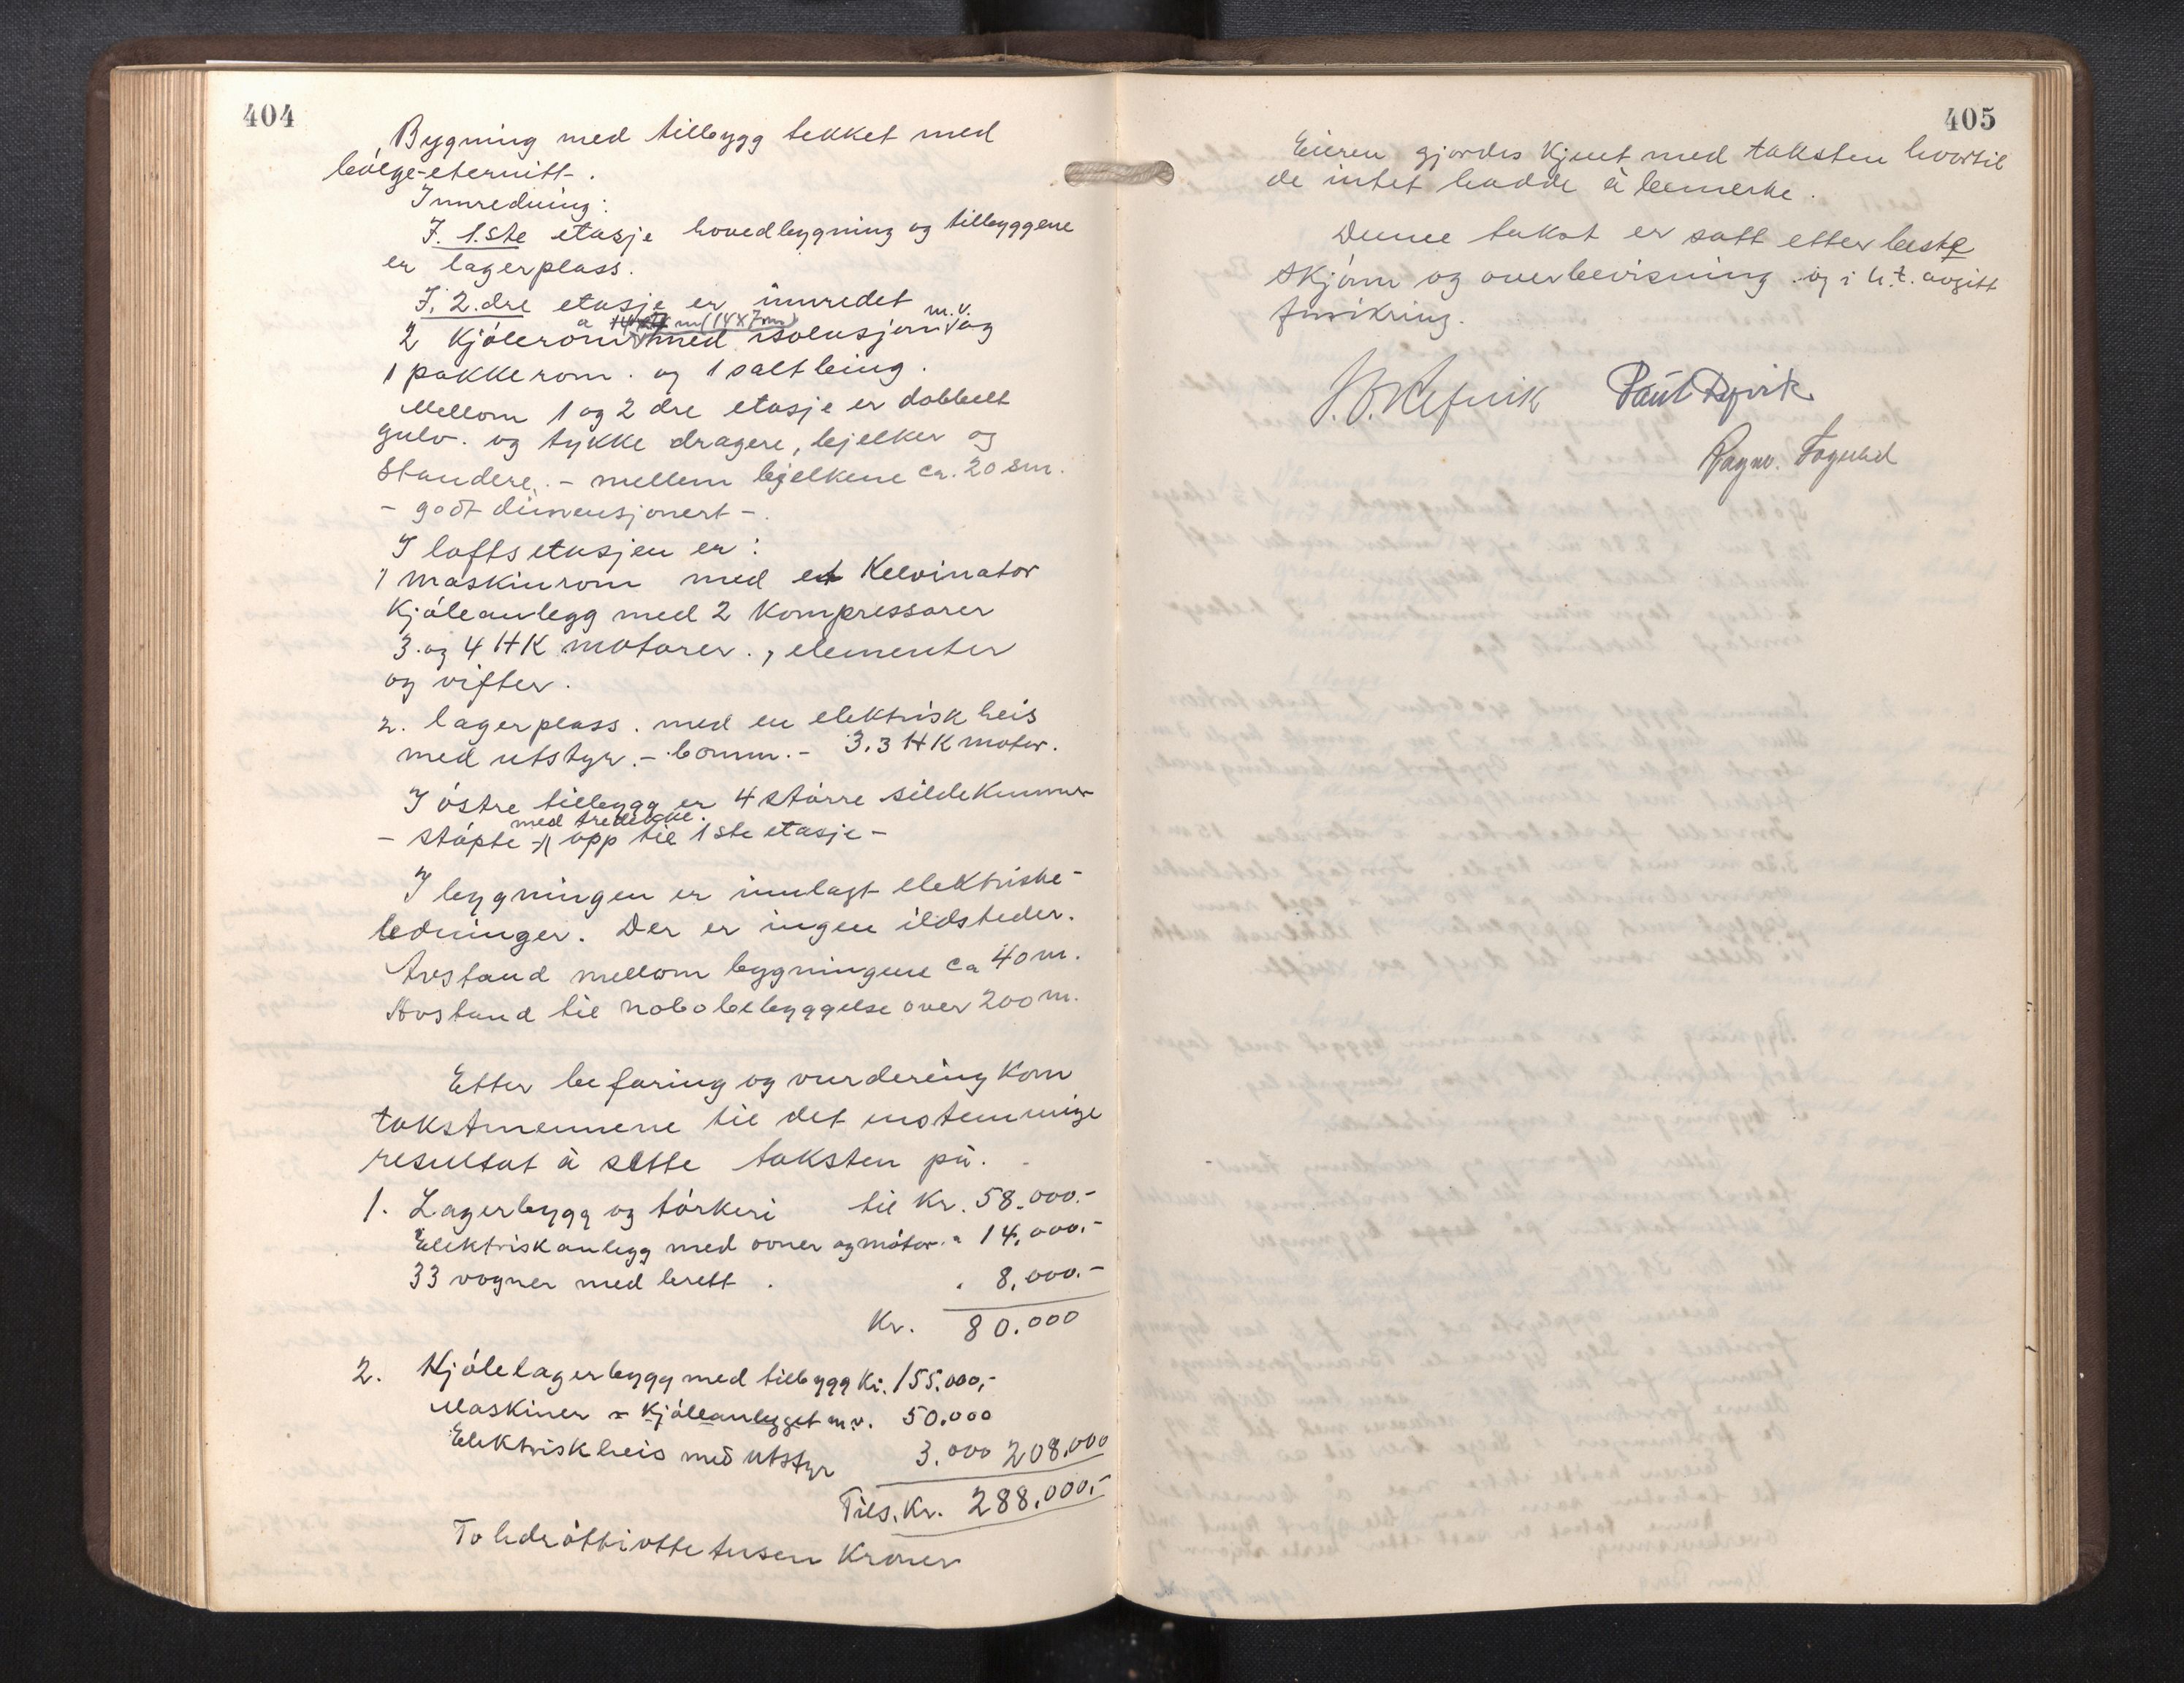 404
Bygning med tilbygg tekket med
bølge-eternitt-.
Innredning:
I. 1.ste etasje hovedbygning og tilbyggene
er lagerplass.
I. 2.dre etasje er innredet
a (14x7m) m.v.
2 Kjølerom med isolasjon og
1 pakkerom. og 1 saltbing.
Mellom 1 og 2 dre etasje er dobbelt
gulv. og tykke dragere, bjelker og
Standere. - mellem bjelkene ca. 20 sm.
- godt dimensjonert -.
I loftsetasjen er:
1 maskinrom med et Kelvinator
Kjøleanlegg med 2 Kompressorer
3. og 4 HK motorer., elementer
og vifter.
2. lagerplass. med en elektrisk heis
med utstyr. - bomm. - 3.3 HK motor.
I østre tilbygg er 4 større sildekummer
med tredekke.
- støpte - opp til 1ste etasje -
I bygningen er innlagt elektriske-
ledninger. Der er ingen ildsteder.
Avstand mellom bygningene ca 40 m.
Avstand til nabobebyggelse over 200 m.
Etter befaring og vurdering kom
takstmennene til det enstemmige
resultat å sette taksten på.
1. Lagerbygg og tørkeri til Kr. 58.000.-
Elektriskanlegg med ovner og motor. " 14.000.-
33 vogner med brett . . 8.000.-
Kr. 80.000
2. Kjølelagerbygg med tilbygg Kr. 155.000,-
Maskiner - Kjøleanlegget m.v. 50.000
Elektriskheis med utstyr 3.000 208.000
Tils. Kr. 288.000,-
To hdr åttiotte tusen Kroner
405
Eieren gjordes Kjent med taksten hvortil
de intet hadde å bemerke.
Denne takst er satt etter beste
skjønn og overbevisning. og i h.t. avgitt
forsikring.
Paul
Ragnv.